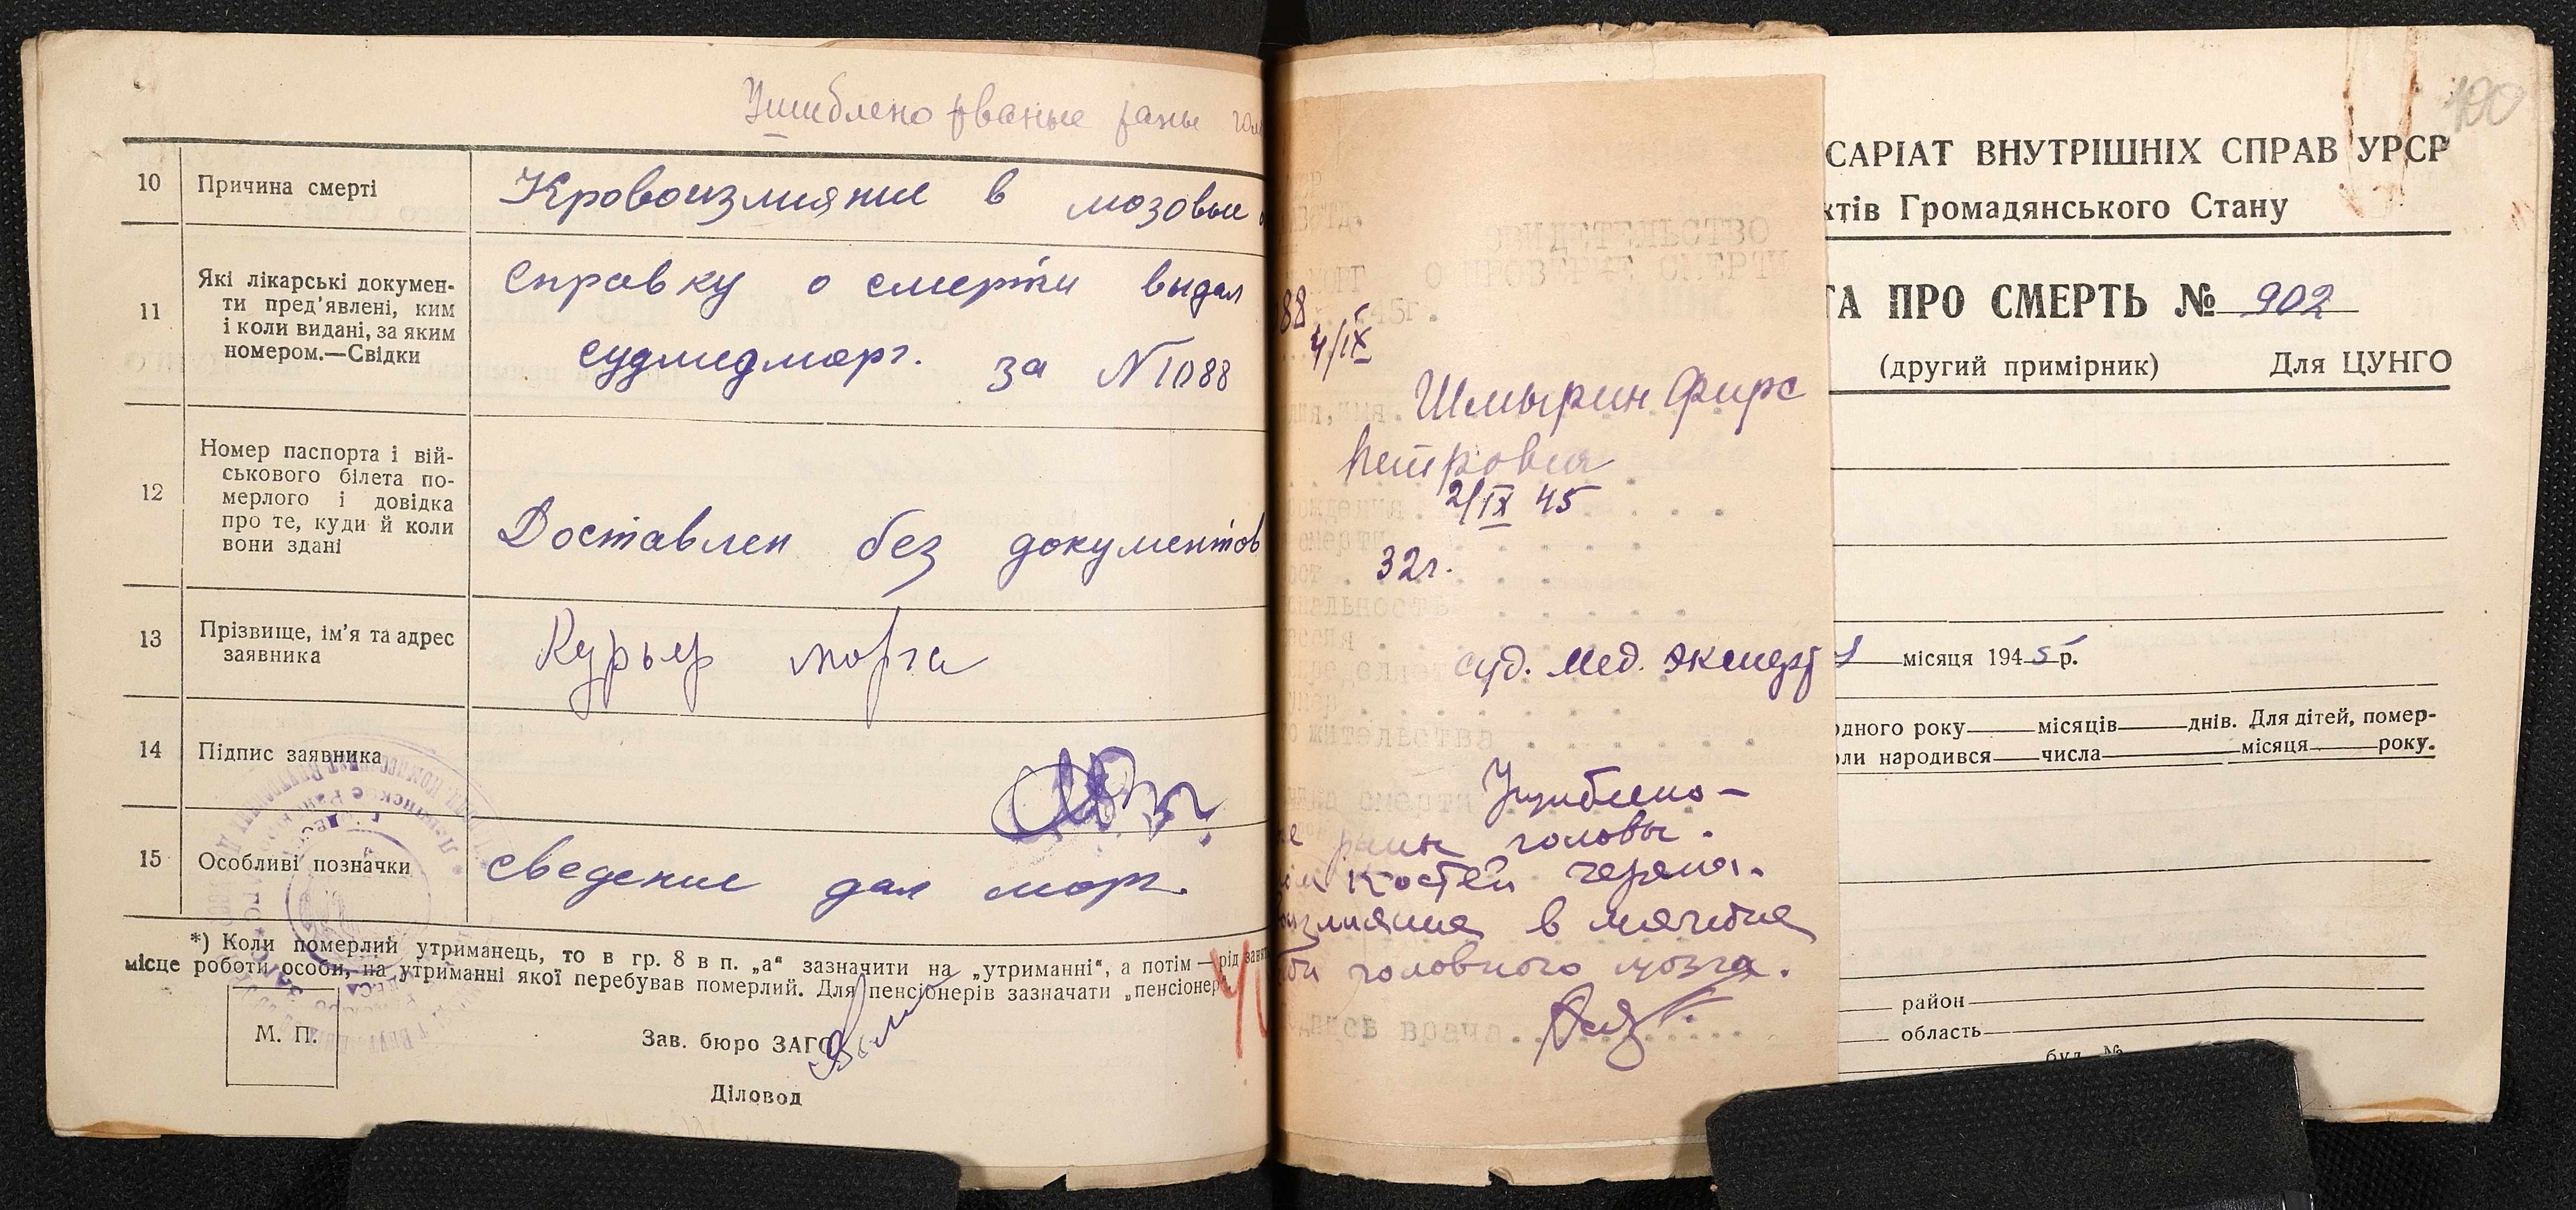 Ушиблено рваные раны
10 Причина смерті Кровоизлияние в мозовые
11 Які лікарські докумен-
ти пред’явлені, ким
і коли видані, за яким
номером.—Свідки
Справку о смерти выдал
судмедморг. за N 1088
12 Номер паспорта і вій-
ськового білета по-
мерлого і довідка
про те, куди й коли
вони здані
Доставлен без документов
13 Прізвище, ім’я та адрес
заявника
Курьер морга
14 Підпис заявника
15 Особливі позначки
Сведение дал морг.
*) Коли померлий утриманець, то в гр. 8 в п. „а“ зазначити на „утриманні“, а потім — рід
місце роботи особи, на утриманні якої перебував померлий. Для пенсіонерів зазначати „пенсіонер
М. П.
Зав. бюро ЗАГС
Діловод
СВИДЕТЕЛЬСТВО
О СМЕРТИ
88
4/IX 45г.
Шмырин Фирс
Петрович
2/IX 45
32г.
суд. мед. эксперт
Ушиблено-
раны головы.
костей черепа.
в
головного мозга.
врача
100
САРІАТ ВНУТРІШНІХ СПРАВ УРСР
ктів Громадянського Стану
ТА ПРО СМЕРТЬ № 902
(другий примірник) Для ЦУНГО
місяця 1945 р.
одного року місяців днів. Для дітей, помер-
оли народився числа місяця року.
район
область
буд. №